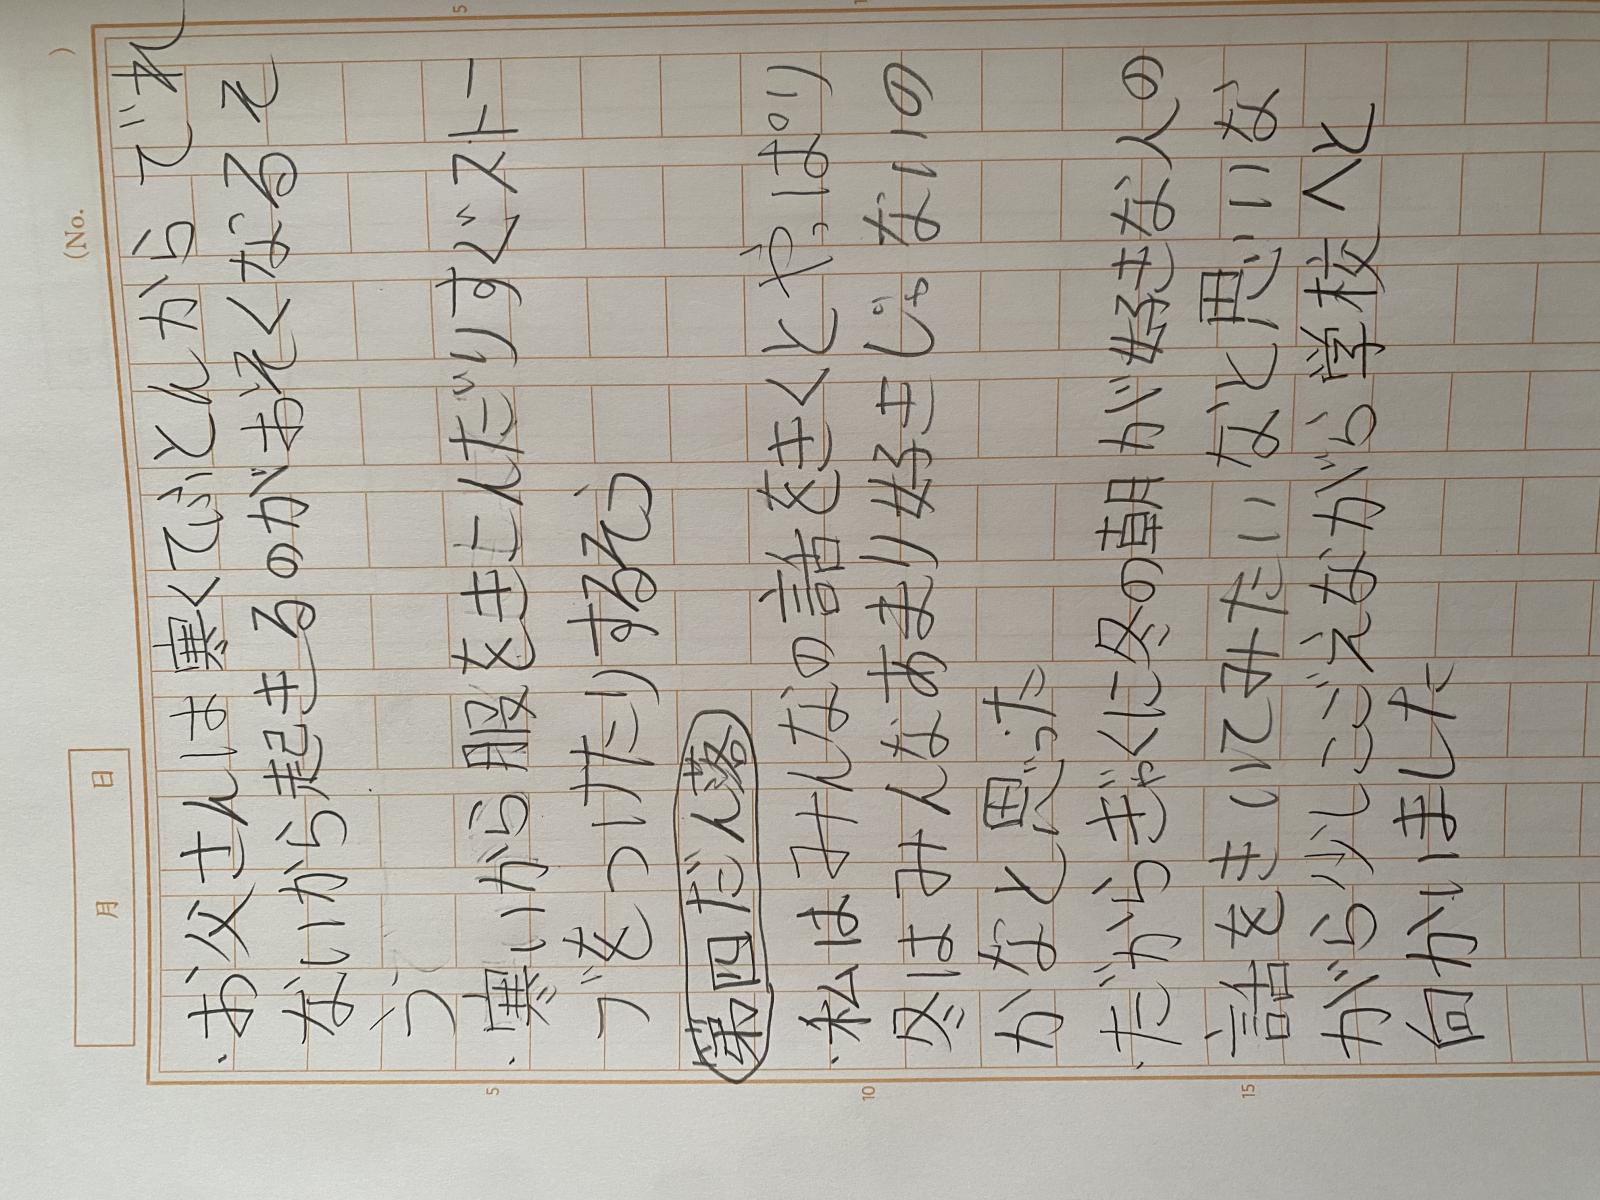 (No.
)
月 日
5
5
10
15
・お父さんは寒くてふとんからでれ
ないから起きるのがおそくなるそ
う
・寒いから服をきこんだりすぐスト
ーブをつけたりするそう
第四だん落
・私はみんなの話をきくとやっぱり
冬はみんなあまり好きじゃないの
かなと思った
・だからぎゃくに冬の朝が好きな人の
話をきいてみたいなと思いな
がら少しこごえながら学校へと
向かいました